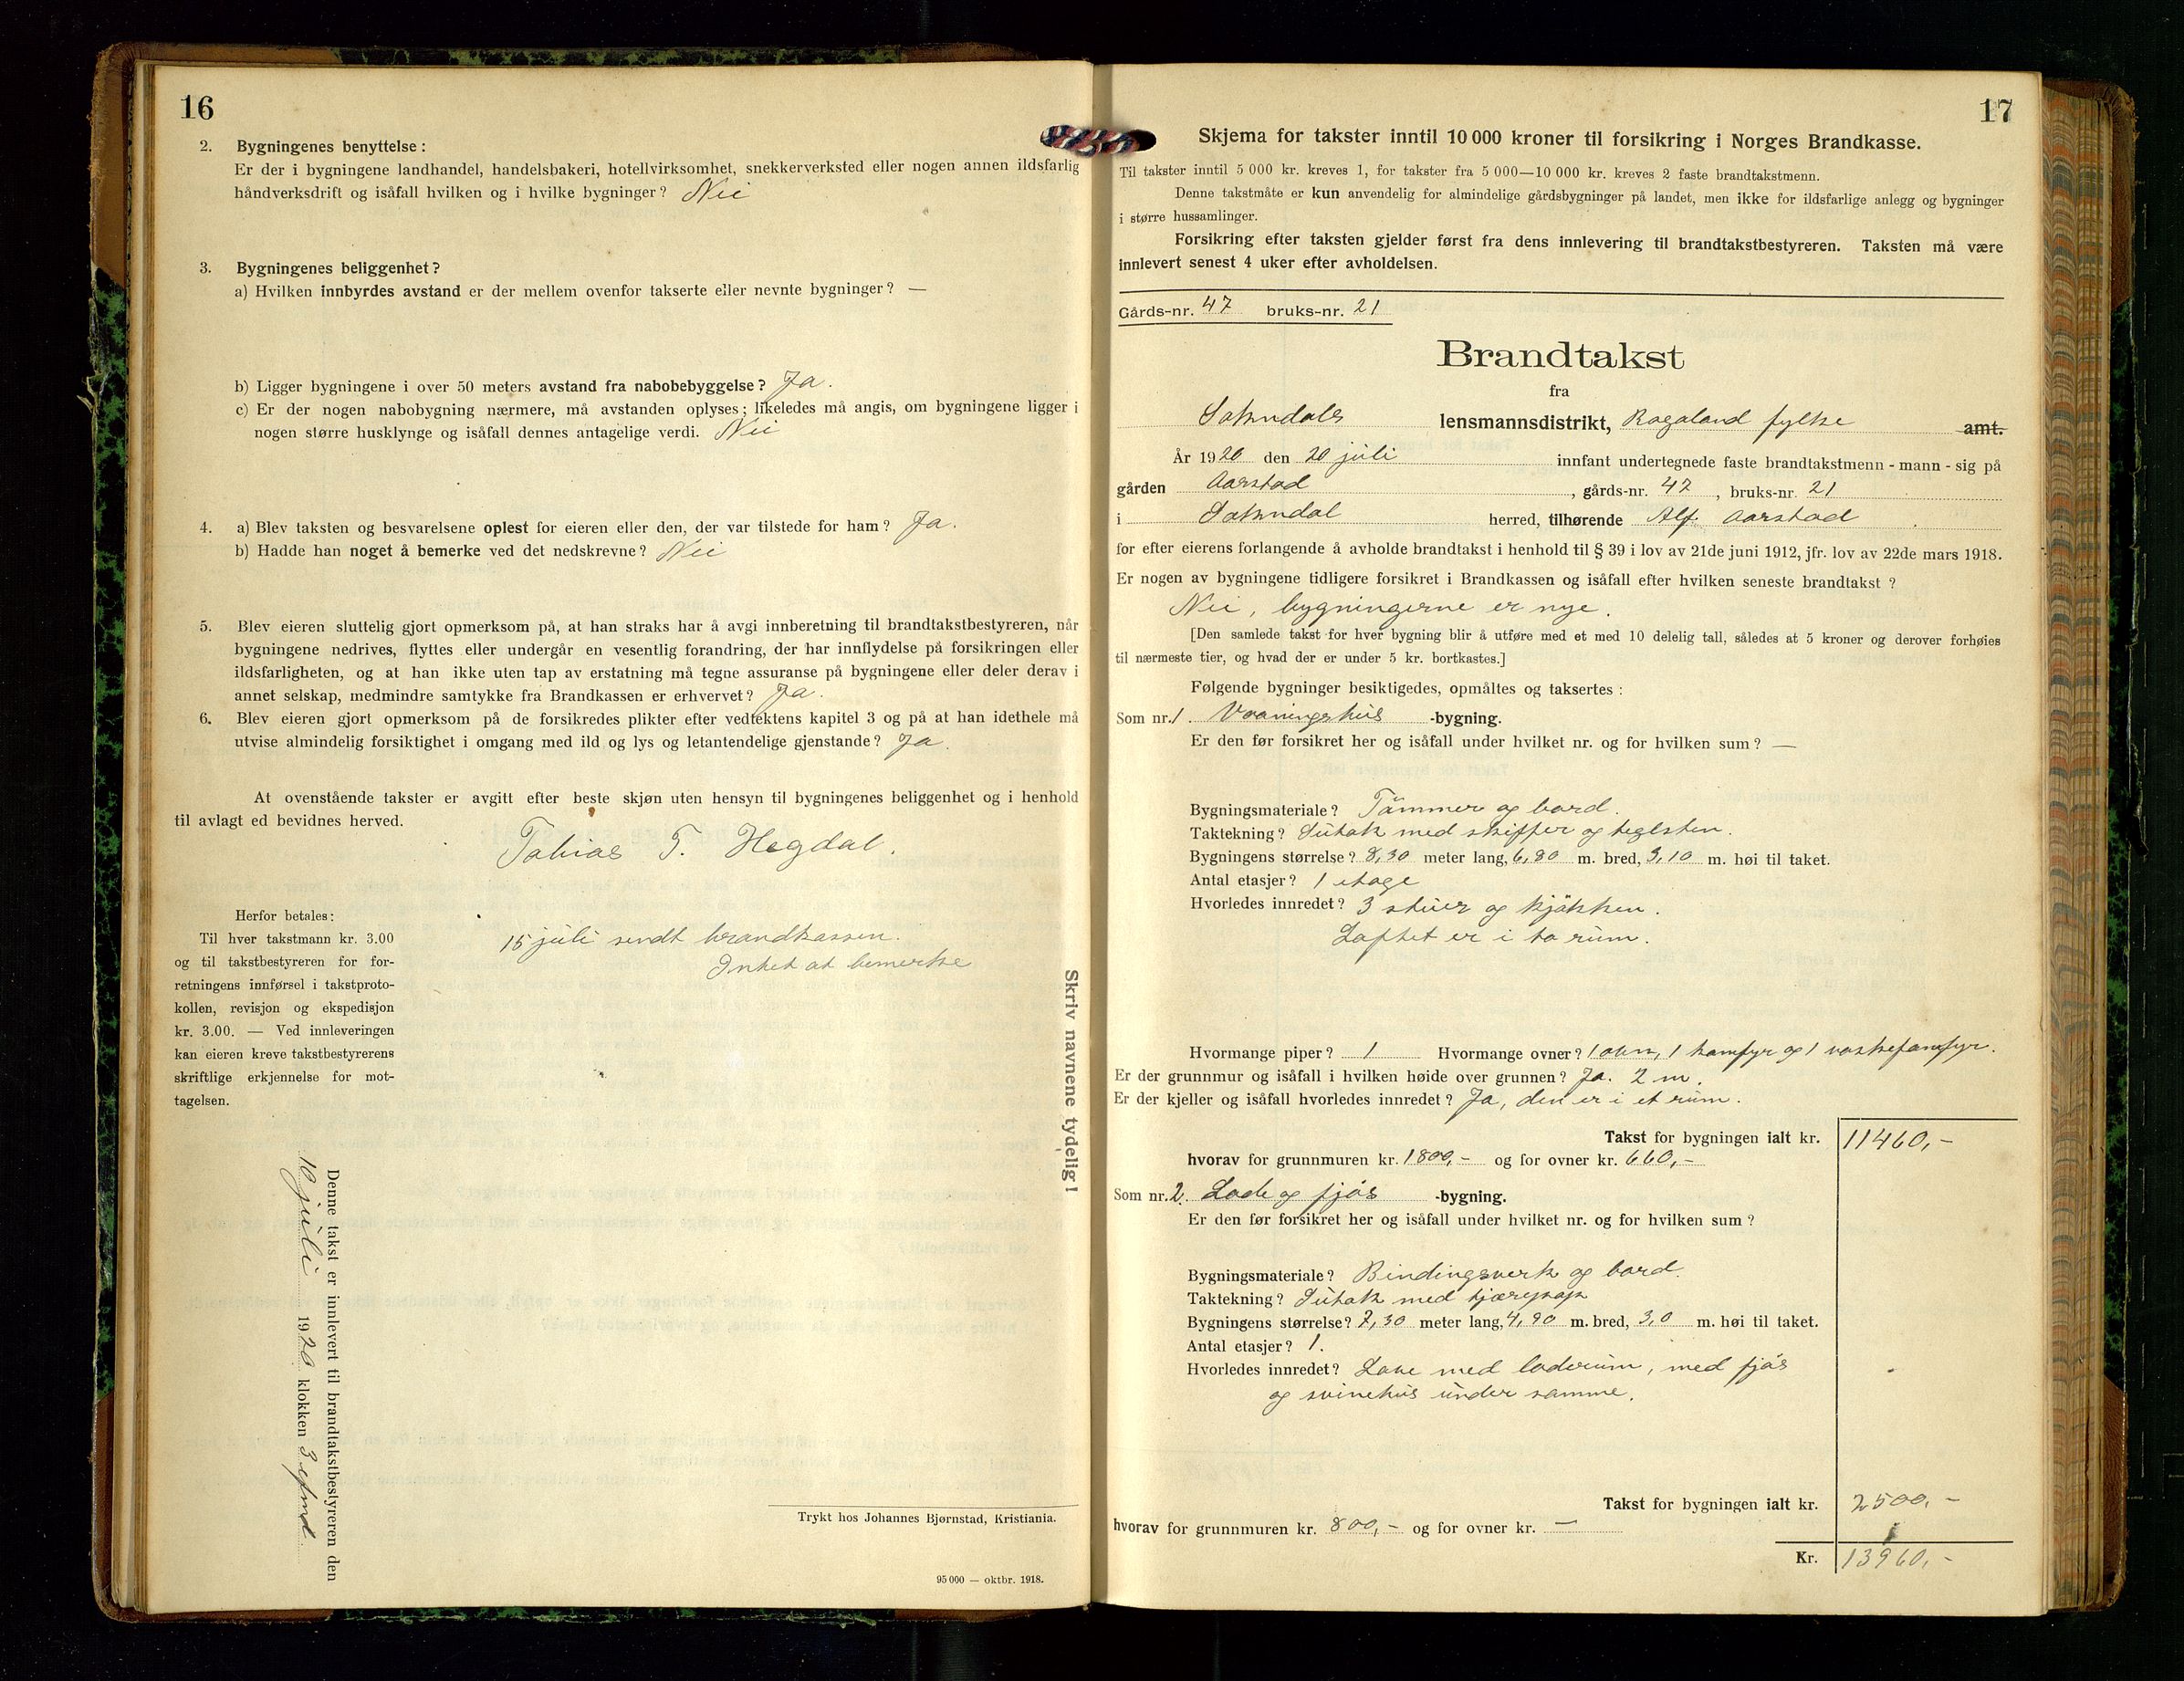 16
2. Bygningenes benyttelse:
Er der i bygningene landhandel, handelsbakeri, hotellvirksomhet, snekkerverksted eller nogen annen ildsfarlig
håndverksdrift og isåfall hvilken og i hvilke bygninger? Nei
3. Bygningenes beliggenhet?
a) Hvilken innbyrdes avstand er der mellem ovenfor takserte eller nevnte bygninger? —
b) Ligger bygningene i over 50 meters avstand fra nabobebyggelse? Ja.
c) Er der nogen nabobygning nærmere, må avstanden oplyses; likeledes må angis, om bygningene ligger i
nogen større husklynge og isåfall dennes antagelige verdi. Nei
4. a) Blev taksten og besvarelsene oplest for eieren eller den, der var tilstede for ham? Ja.
b) Hadde han noget å bemerke ved det nedskrevne? Nei
5. Blev eieren sluttelig gjort opmerksom på, at han straks har å avgi innberetning til brandtakstbestyreren, når
bygningene nedrives, flyttes eller undergår en vesentlig forandring, der har innflydelse på forsikringen eller
ildsfarligheten, og at han ikke uten tap av erstatning må tegne assuranse på bygningene eller deler derav i
annet selskap, medmindre samtykke fra Brandkassen er erhvervet? Ja.
6. Blev eieren gjort opmerksom på de forsikredes plikter efter vedtektens kapitel 3 og på at han idethele må
utvise almindelig forsiktighet i omgang med ild og lys og letantendelige gjenstande? Ja.
At ovenstående takster er avgitt efter beste skjøn uten hensyn til bygningenes beliggenhet og i henhold
til avlagt ed bevidnes herved.
Tobias T. Hegdal.
Herfor betales:
Til hver takstmann kr. 3.00
og til takstbestyreren for for-
retningens innførsel i takstproto-
kollen, revisjon og ekspedisjon
kr. 3.00. — Ved innleveringen
kan eieren kreve takstbestyrerens
skriftlige erkjennelse for mot-
tagelsen.
15 juli sendt brandkassen.
Intet at bemerke
Skriv navnene tydelig!
Denne takst er innlevert til brandtakstbestyreren den
10 juli 1920 klokken 3 efmd.
Trykt hos Johannes Bjørnstad, Kristiania.
95 000 — oktbr. 1918.
17
Skjema for takster inntil 10 000 kroner til forsikring i Norges Brandkasse.
Til takster inntil 5 000 kr. kreves 1, for takster fra 5 000—10 000 kr. kreves 2 faste brandtakstmenn.
Denne takstmåte er kun anvendelig for almindelige gårdsbygninger på landet, men ikke for ildsfarlige anlegg og bygninger
i større hussamlinger.
Forsikring efter taksten gjelder først fra dens innlevering til brandtakstbestyreren. Taksten må være
innlevert senest 4 uker efter avholdelsen.
Gårds-nr. 47 bruks-nr. 21
Brandtakst
fra
Sokndals lensmannsdistrikt, Rogaland fylke amt.
År 1920 den 20 juli innfant undertegnede faste brandtakstmenn - mann - sig på
gården Aarstad, gårds-nr. 47, bruks-nr. 21
i Sokndal herred, tilhørende Alf. Aarstad
for efter eierens forlangende å avholde brandtakst i henhold til § 39 i lov av 21de juni 1912, jfr. lov av 22de mars 1918.
Er nogen av bygningene tidligere forsikret i Brandkassen og isåfall efter hvilken seneste brandtakst?
Nei, bygningerne er nye.
[Den samlede takst for hver bygning blir å utføre med et med 10 delelig tall, således at 5 kroner og derover forhøies
til nærmeste tier, og hvad der er under 5 kr. bortkastes.]
Følgende bygninger besiktigedes, opmåltes og taksertes:
Som nr. 1. Vaaningshus -bygning.
Er den før forsikret her og isåfall under hvilket nr. og for hvilken sum? —
Bygningsmateriale? Tømmer og bord.
Taktekning? Sutak med skiffer og teglsten.
Bygningens størrelse? 8,30 meter lang, 6,80 m. bred, 3,10 m. høi til taket.
Antal etasjer? 1 etage
Hvorledes innredet? 3 stuer og kjøkken.
Loftet er i to rum.
Hvormange piper? 1 Hvormange ovner? 1 ovn, 1 komfyr og 1
Er der grunnmur og isåfall i hvilken høide over grunnen? Ja. 2 m.
Er der kjeller og isåfall hvorledes innredet? Ja, den er i et rum.
Takst for bygningen ialt kr. 11460,-
hvorav for grunnmuren kr. 1800,- og for ovner kr. 660,-
Som nr. 2. Lade og fjøs -bygning.
Er den før forsikret her og isåfall under hvilket nr. og for hvilken sum?
Bygningsmateriale? Bindingsverk og bord.
Taktekning? Sutak med tjærepap
Bygningens størrelse? 7,30 meter lang, 4,90 m. bred, 3,0 m. høi til taket.
Antal etasjer? 1.
Hvorledes innredet? med laderum, med fjøs
og svinehus under samme.
Takst for bygningen ialt kr. 2500,-
hvorav for grunnmuren kr. 800,- og for ovner kr. —
Kr. 13960,-